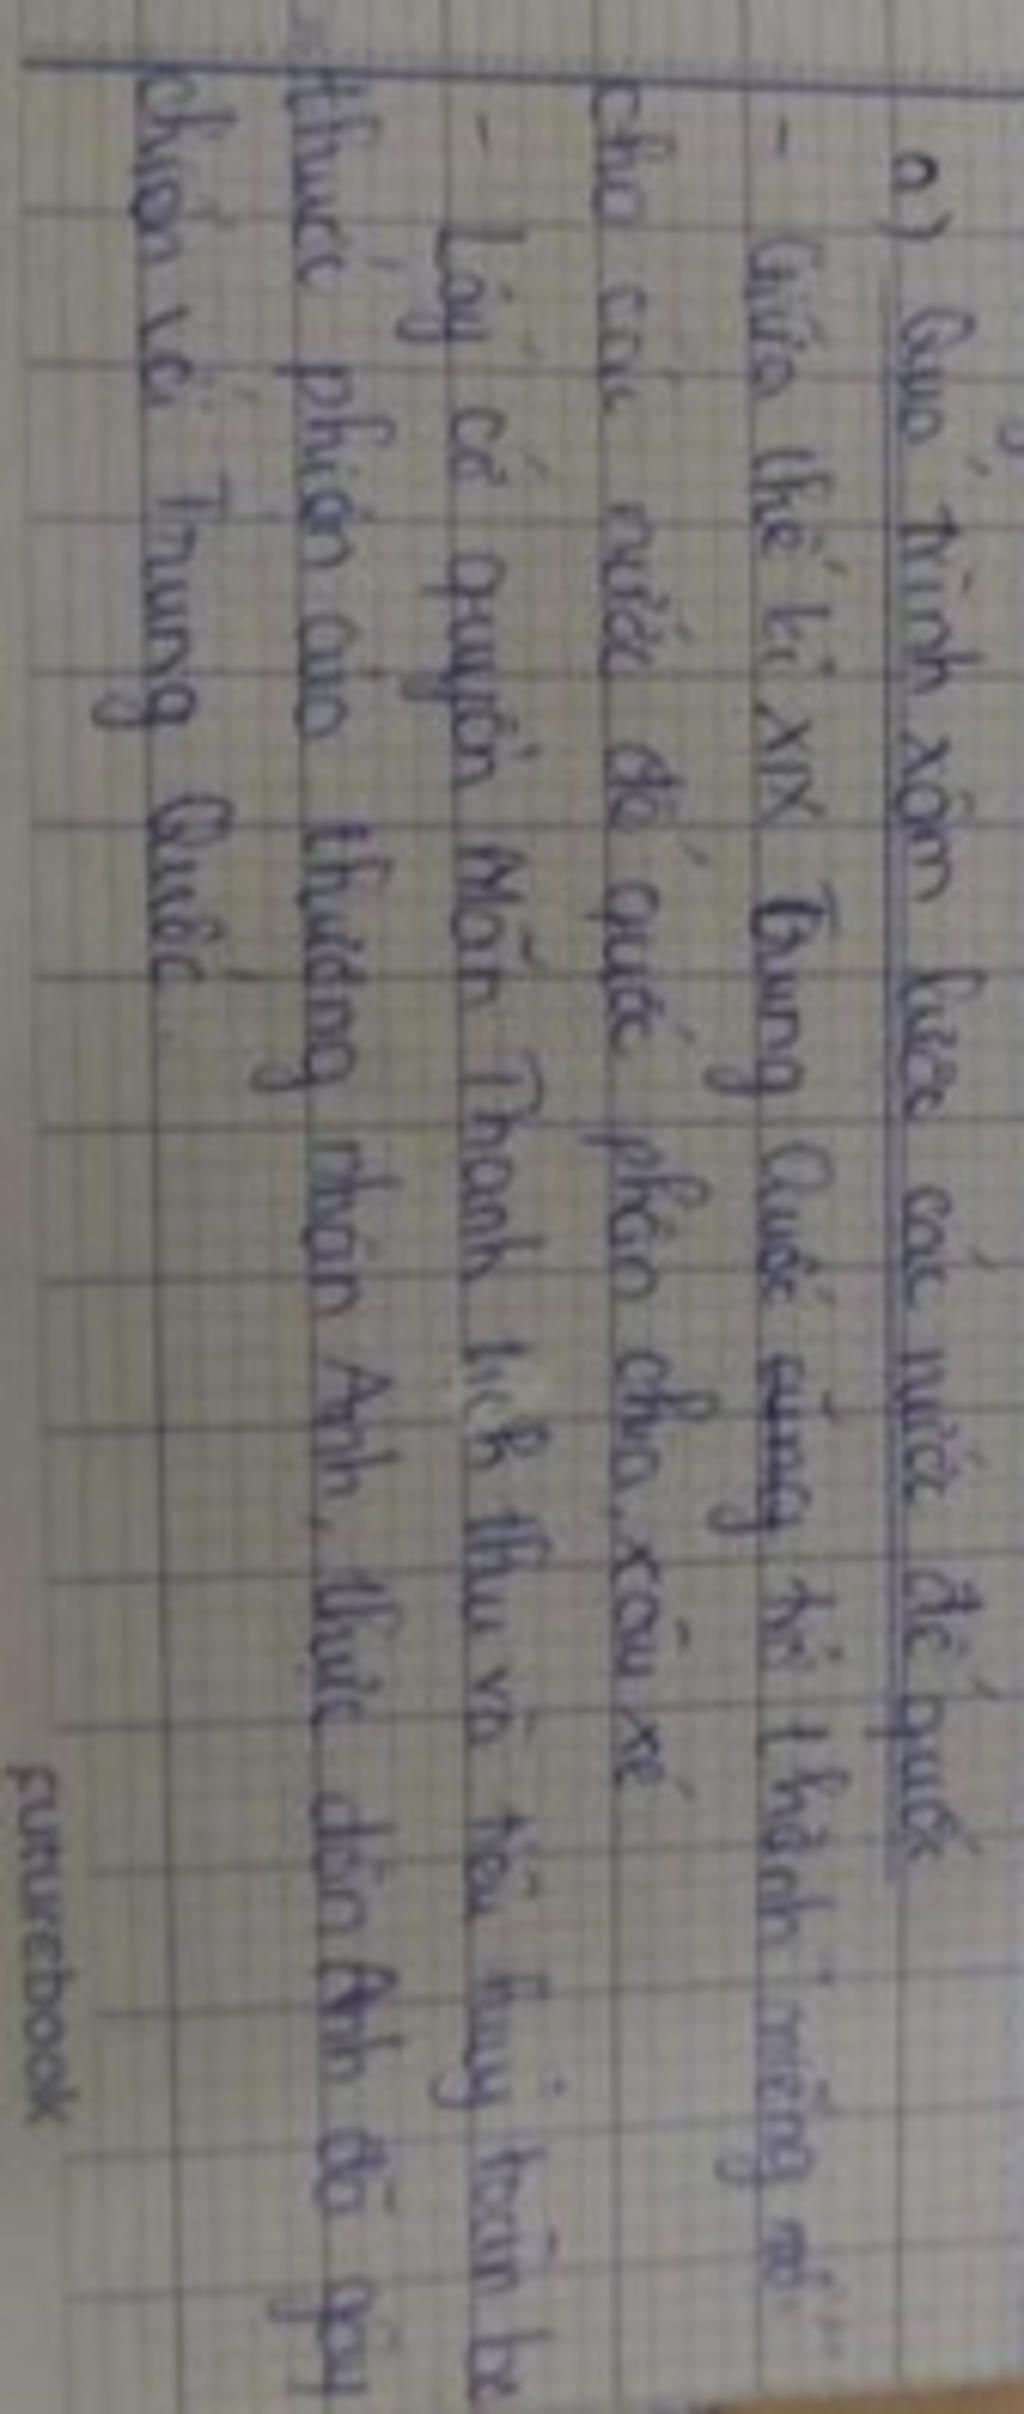 a) Quá trình xâm lược các nước đế quốc
- Giữa thế kỉ XIX Trung Quốc cũng trở thành "miếng mồi"
cho các nước đế quốc phân chia, xâu xé
- Lấy cớ quyền Mãn Thanh tịch thu và tiêu huỷ toàn bộ
thuốc phiện của thương nhân Anh, thực dân Anh đã gây
chiến với Trung Quốc.
futurebook